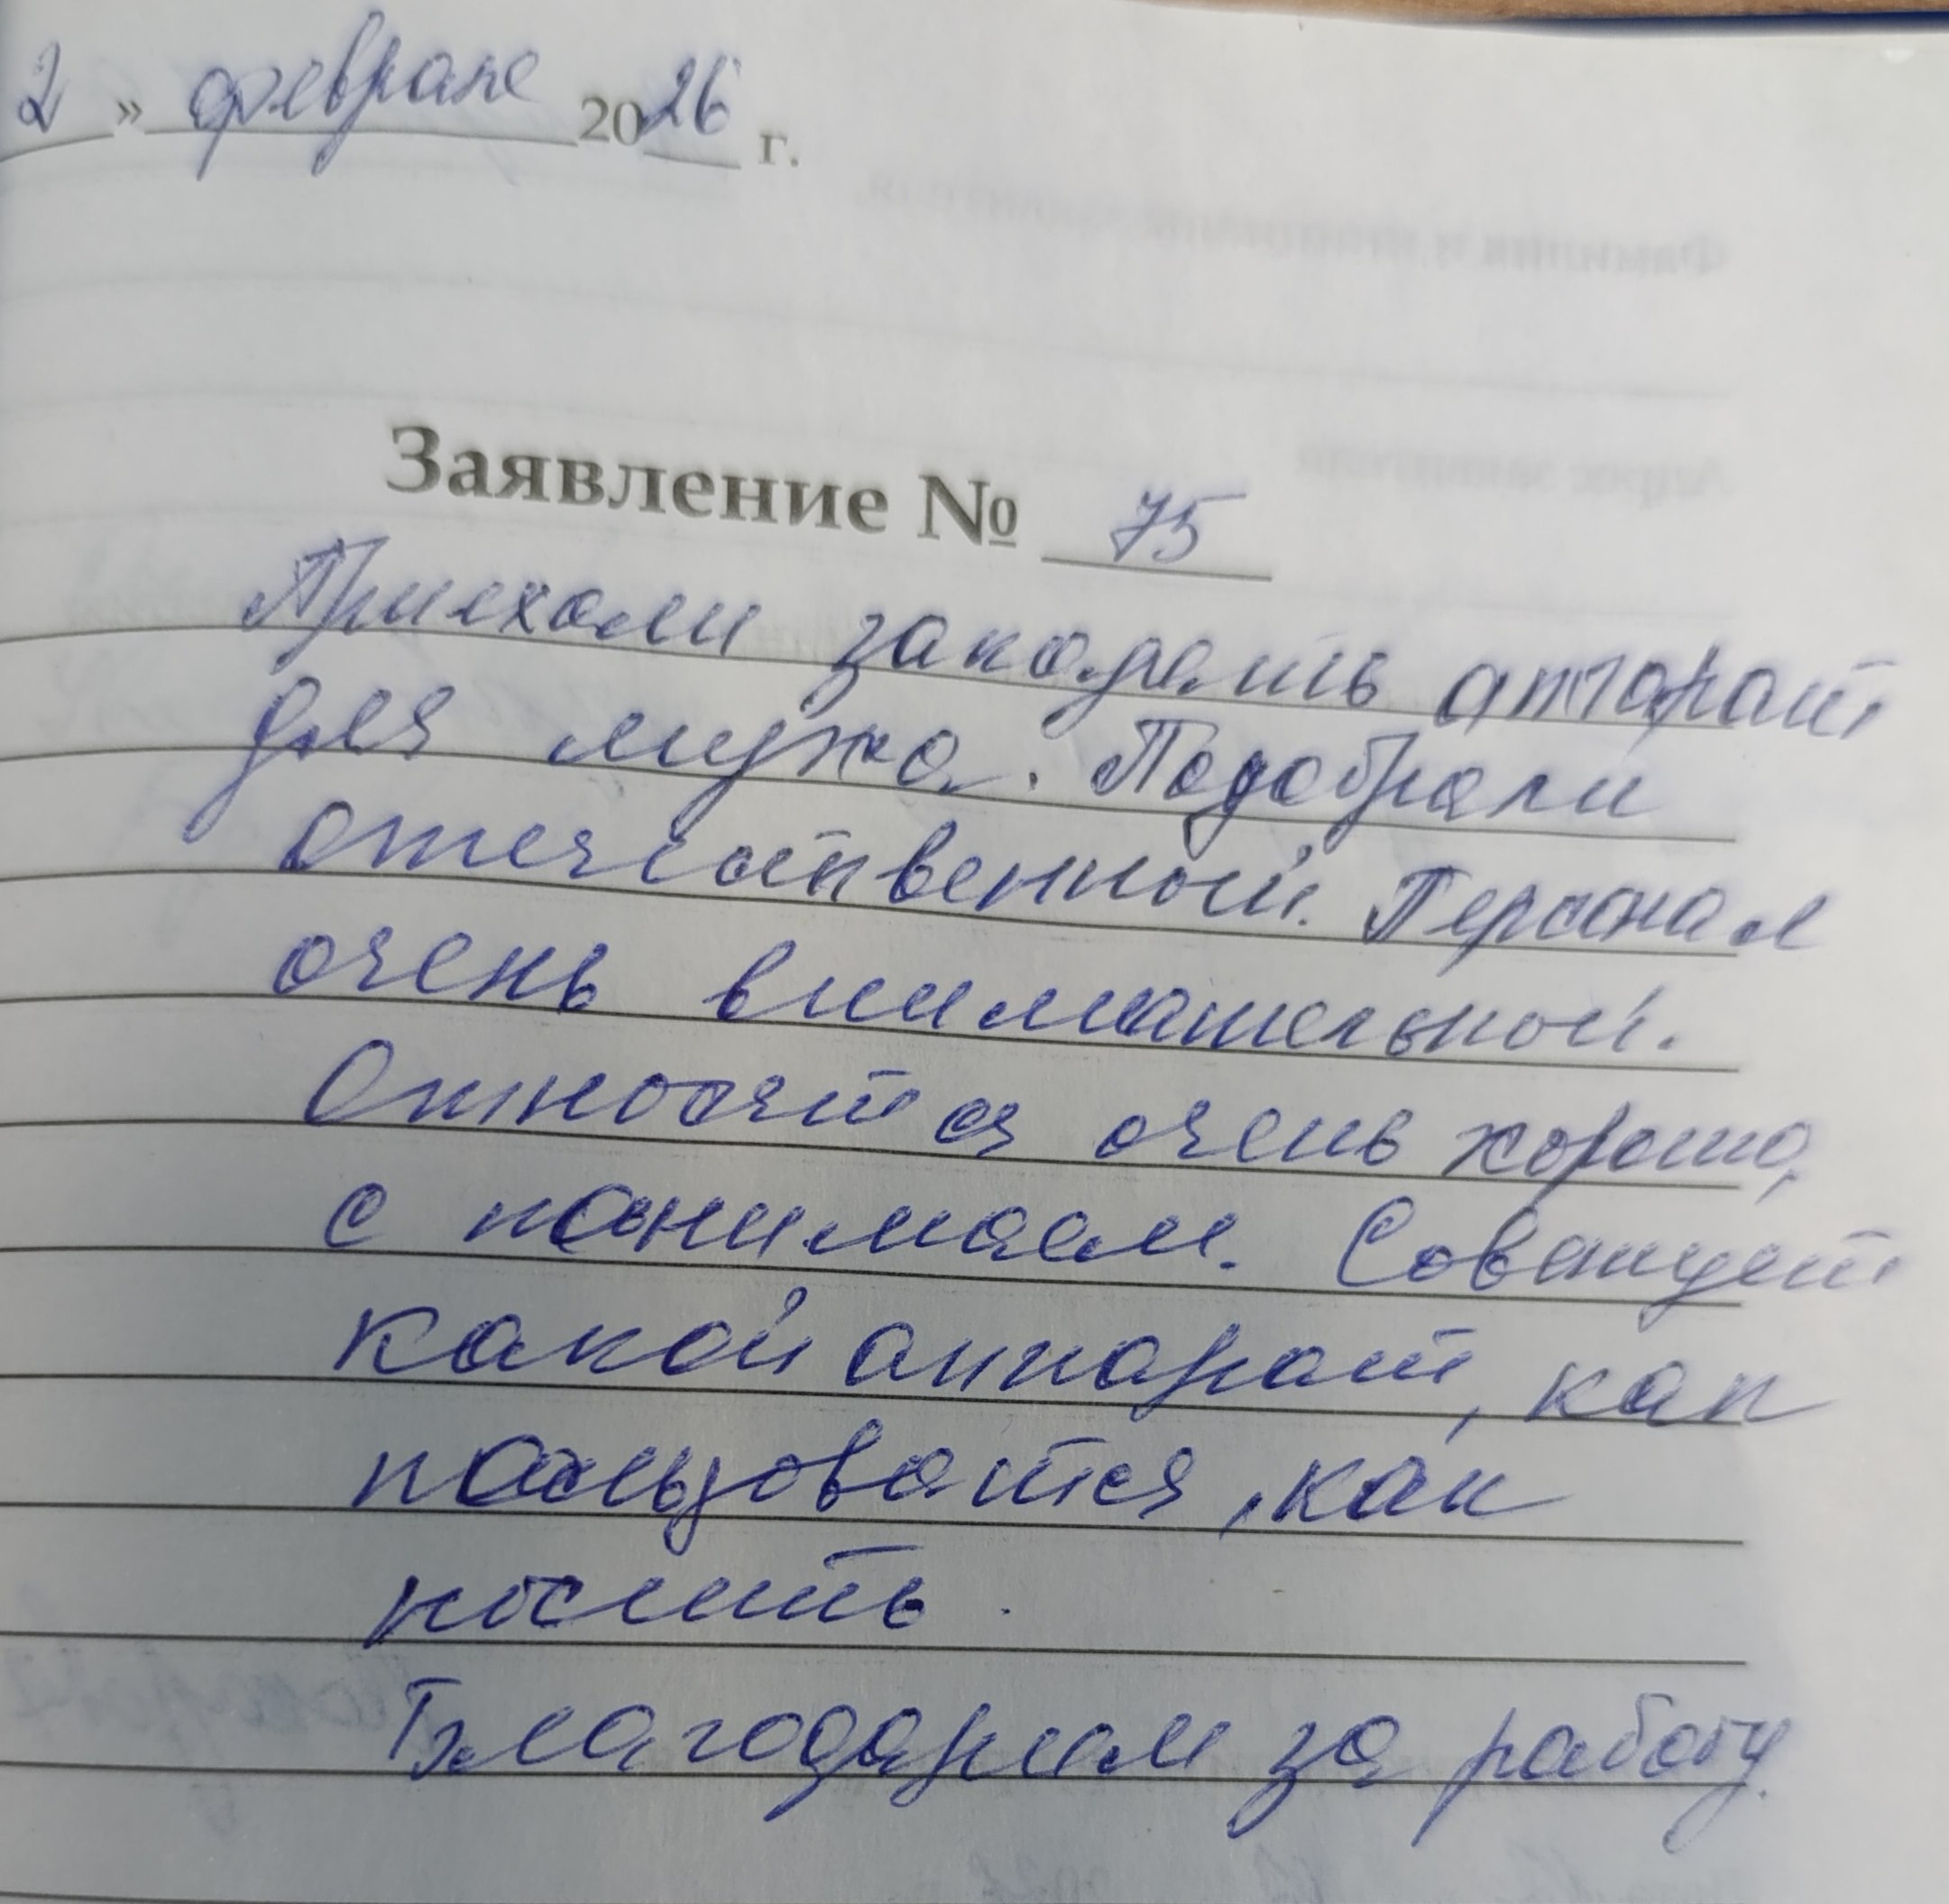 2 » феврале 2026 г.
Заявление № 75
Приехали закозать аппарат
для мужа. Подобрали
отечественный. Персонал
очень внимательной.
Относятся очень хорошо,
с понимаем. Советуют
какой аппарат, как
пользоватся, как
носить.
Благодарим за работу.